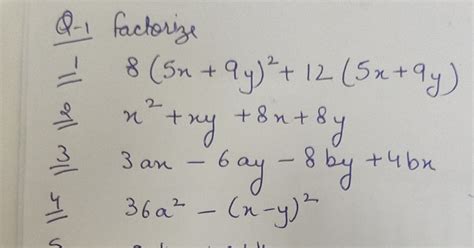 Q-1 Factorize
1 8(5x+9y)²+12(5x+9y)
2 x²+xy+8x+8y
3 3ax-6ay-8by+4bx
4 36a²-(x-y)²